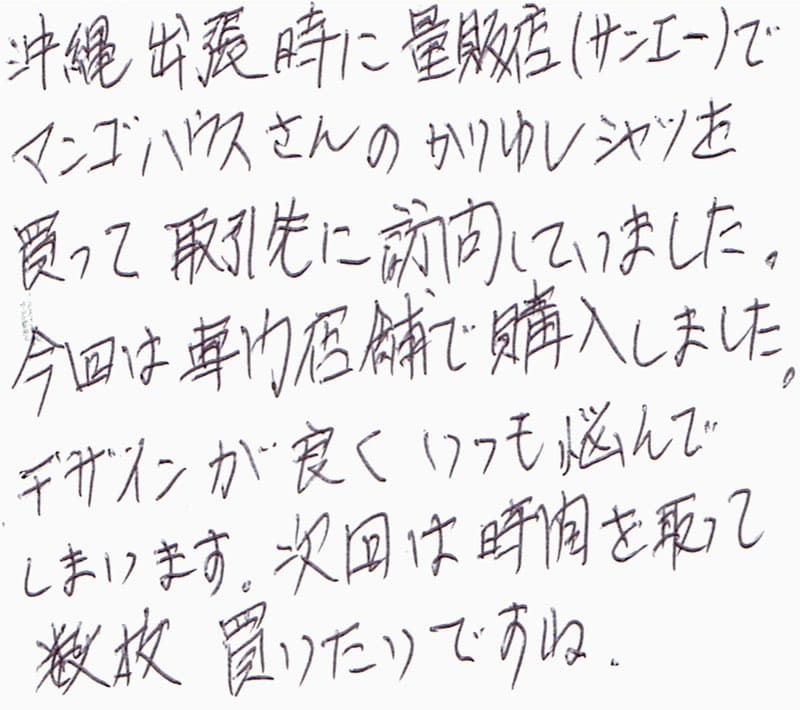 沖縄出張時に量販店(サンエー)で
マンゴハウスさんのかりゆしシャツを
買って取引先に訪問していました。
今回は専門店舗で購入しました。
デザインが良くいつも悩んで
しまいます。次回は時間を取って
数枚買いたいですね.